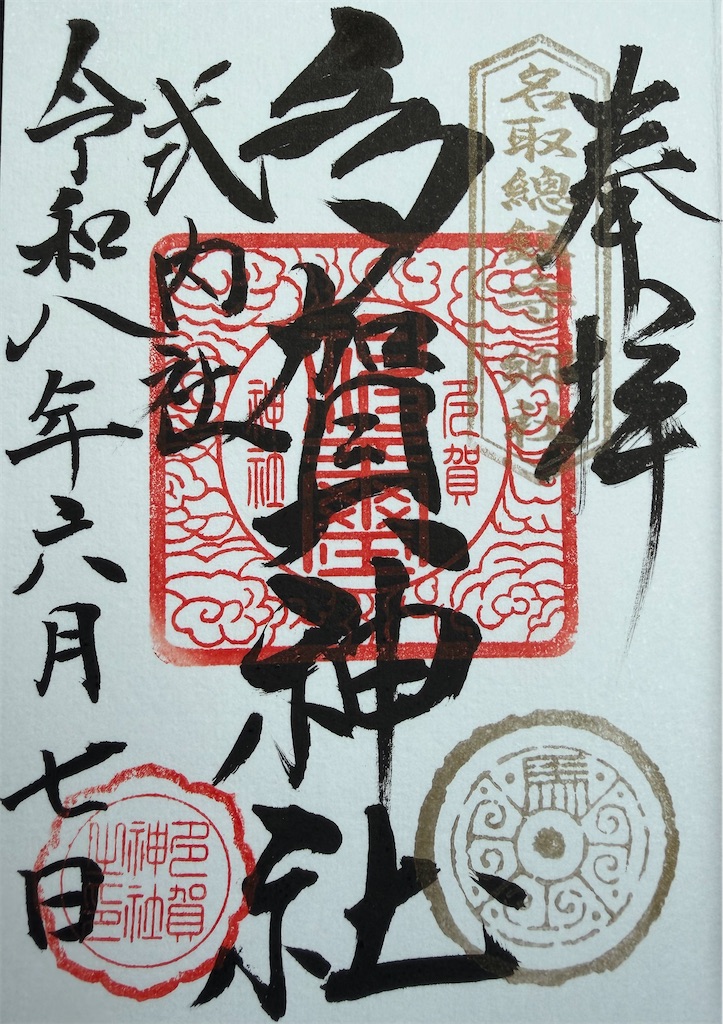 奉拝
名取總鎮守
多賀神社
式内社
令和八年六月七日
多賀
神社
多賀
神社
之印
馬